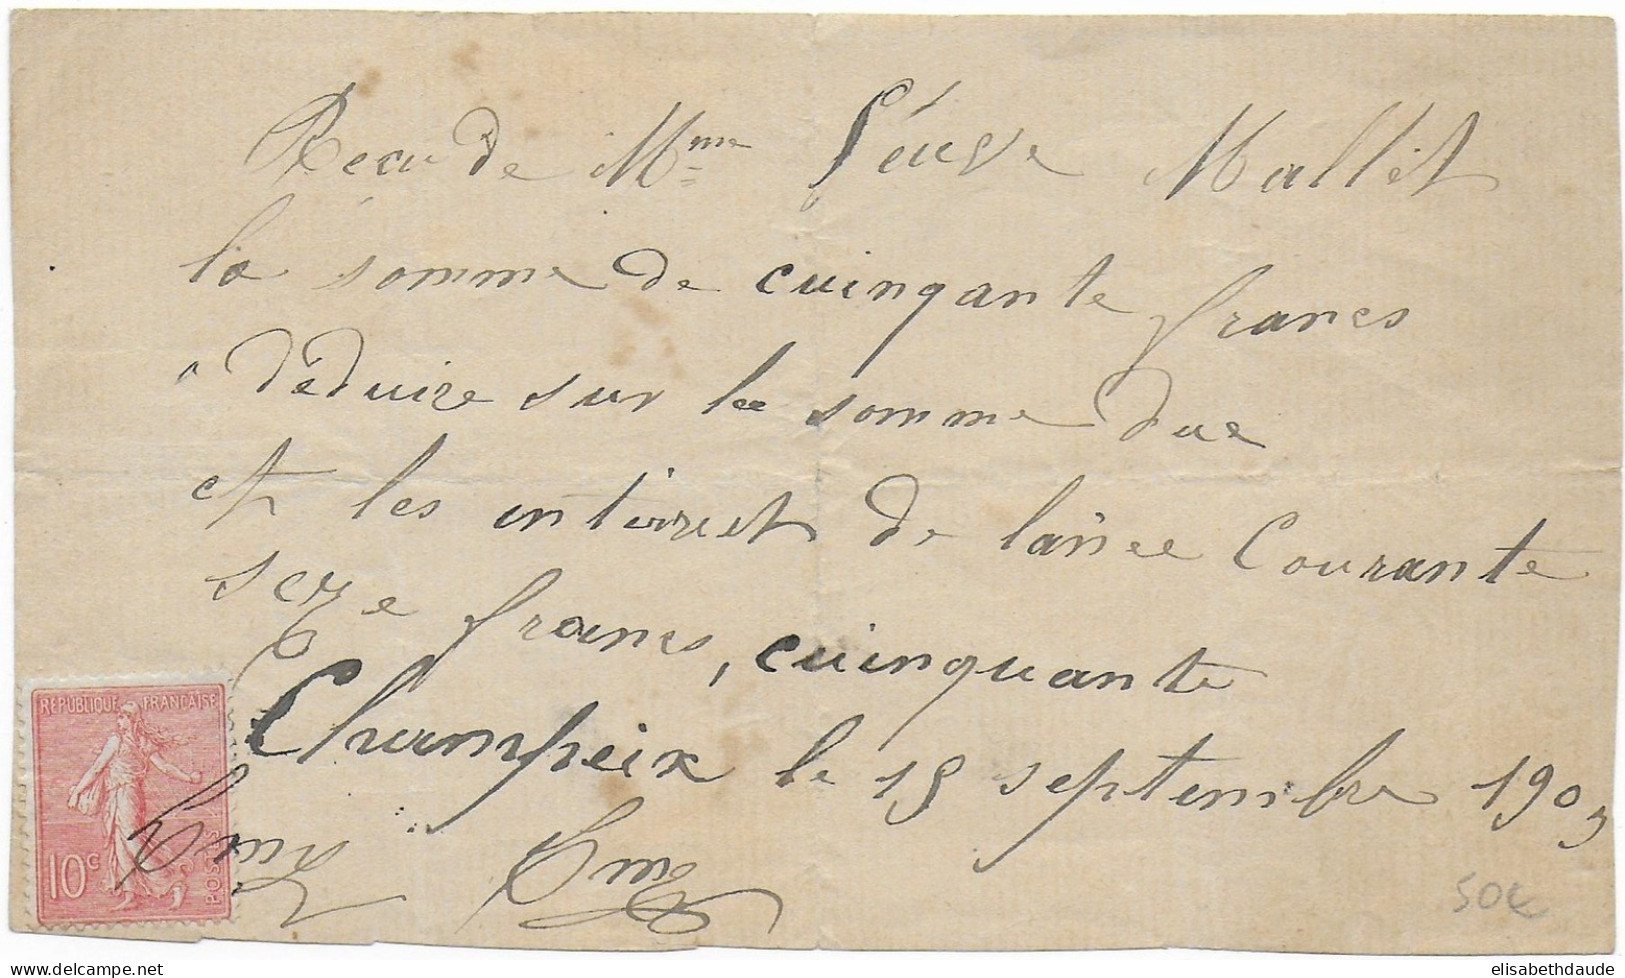 Recu de Mme Veuve Mallet
la somme de cuinqante francs
a déduire sur la somme due
et les intirret de lanée Courante
seze francs, cuinquante
Champeix le 18 septembre 1903
REPUBLIQUE FRANÇAISE
10c
POSTES
50€
elisabethdaude